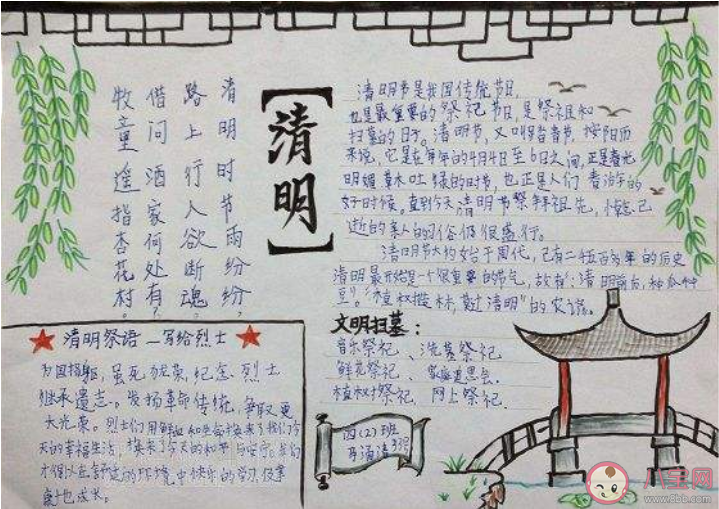 清明时节雨纷纷，
路上行人欲断魂。
借问酒家何处有？
牧童遥指杏花村。
【清明】
清明节是我国传统节日，
也是最重要的祭祀节日，是祭祖和
扫墓的日子。清明节，又叫踏青节，按阳历
来说，它是在每年的4月4日至6日之间，正是春光
明媚草木吐绿的时节，也正是人们春游的
好时候。直到今天清明节祭拜祖先，悼念已
逝的亲人的习俗仍很盛行。
清明节大约始于周代，已有二千五百多年的历史
清明最开始是一个很重要的节气，故有：清明前后，种瓜种
豆。“植树造林，莫过清明”的农谚。
清明祭语—写给烈士
为国捐躯，虽死犹荣，纪念烈士
继承遗志。发扬革命传统，争取更
大光荣。烈士们用鲜血和生命换来了我们今
天的幸福生活，换来了今天的和平与安宁。我们
才得以在舒适的环境中快乐的学习
成长。
文明扫墓：
音乐祭祀、洗墓祭祀
鲜花祭祀、家庭追思会、
植树祭祀、网上祭祀
四（2）班
33号
八宝网
www.8bb.com